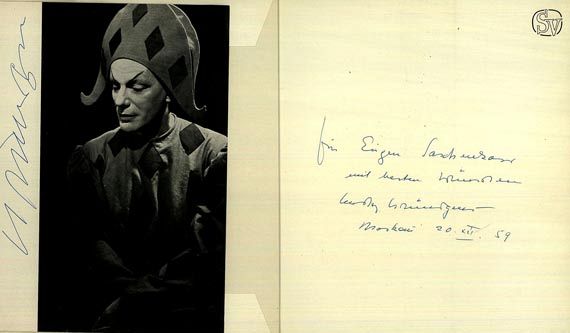 SV
Gründgens
für Eugen
mit besten Wünschen
Gustaf Gründgens
Moskau 20. XII. 59